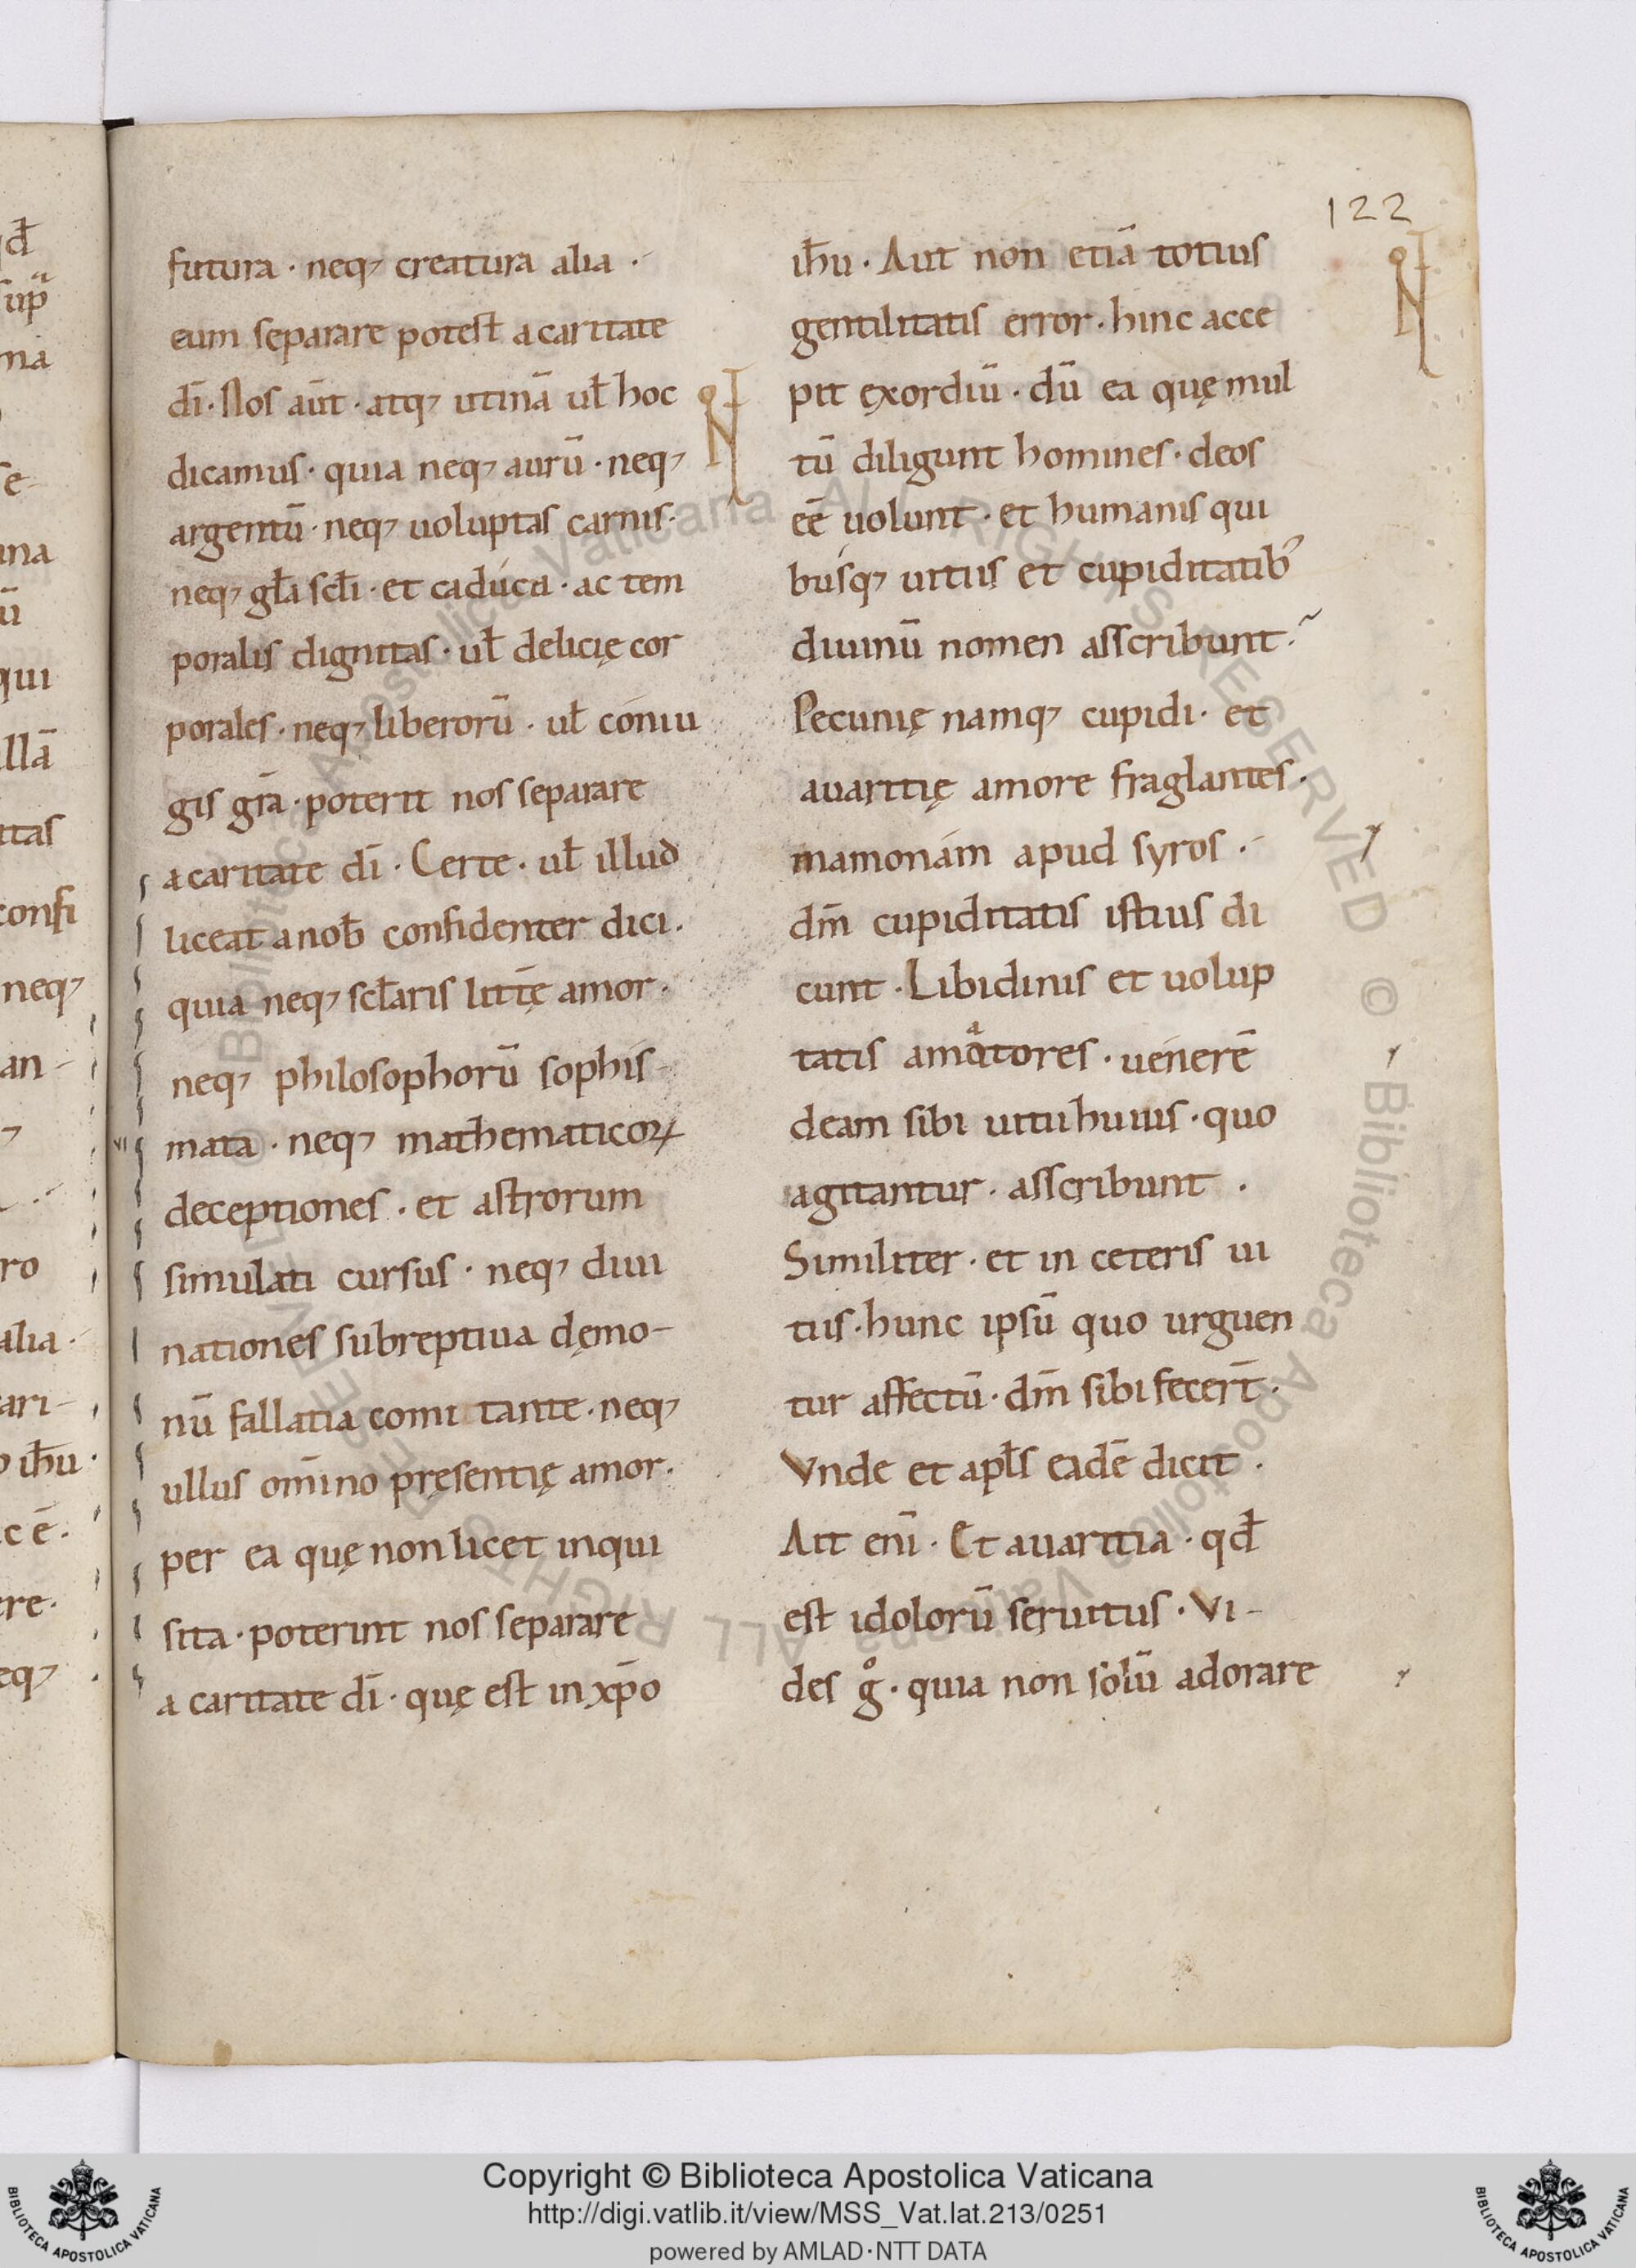 122
futura · neq; creatura alia ·
eum separare potest a caritate
dī · Nos aūt · atq; utinā ul̄ hoc
dicamus · quia neq; aurū · neq;
argentū · neq; uoluptas carnis ·
neq; gl̄a scl̄i · et caduca · ac tem
poralis dignitas · ul̄ delicię cor
porales · neq; liberorū · ul̄ coniu
gis grā · poterit nos separare
a caritate dī · Certe · ul̄ illud
liceat a nob̄ confidenter dici .
quia neq; scl̄aris littę̄ amor .
neq; philosophorū sophis-
mata · neq; mathematicoꝝ
deceptiones · et astrorum
simulati cursus · neq; diui
nationes subreptiua dęmo-
nū fallatia comi tante · neq;
ullus om̄ino pręsentię amor .
per ea quę non licet inqui
sita · poterint nos separare
a caritate dī · quę est in xp̄o
ih̄u · Aut non etiā totius
gentilitatis error · hinc acce
pit exordiū · dū ea quę mul
tū diligunt homines · deos
eē uolunt · et humanis qui
busq; uitiis et cupiditatib;
diuinū nomen asscribunt .
Pecunię namq; cupidi · et
auaritię amore fraglantes .
mamonam apud syros .
dm̄ cupiditatis istius di
cunt · Libidinis et uolup
tatis amatores · uenerē
deam sibi uitii huius · quo
agitantur · asscribunt .
Similiter · et in ceteris ui
tiis · hunc ipsū quo urguen
tur affectū · dm̄ sibi fecer̄t .
Vnde et apl̄s eadē dicit .
Ait enī · Et auaritia · qd̄
est idolorū seruitus · Vi-
des gͦ · quia non solū adorare
Copyright © Biblioteca Apostolica Vaticana
http://digi.vatlib.it/view/MSS_Vat.lat.213/0251
powered by AMLAD·NTT DATA